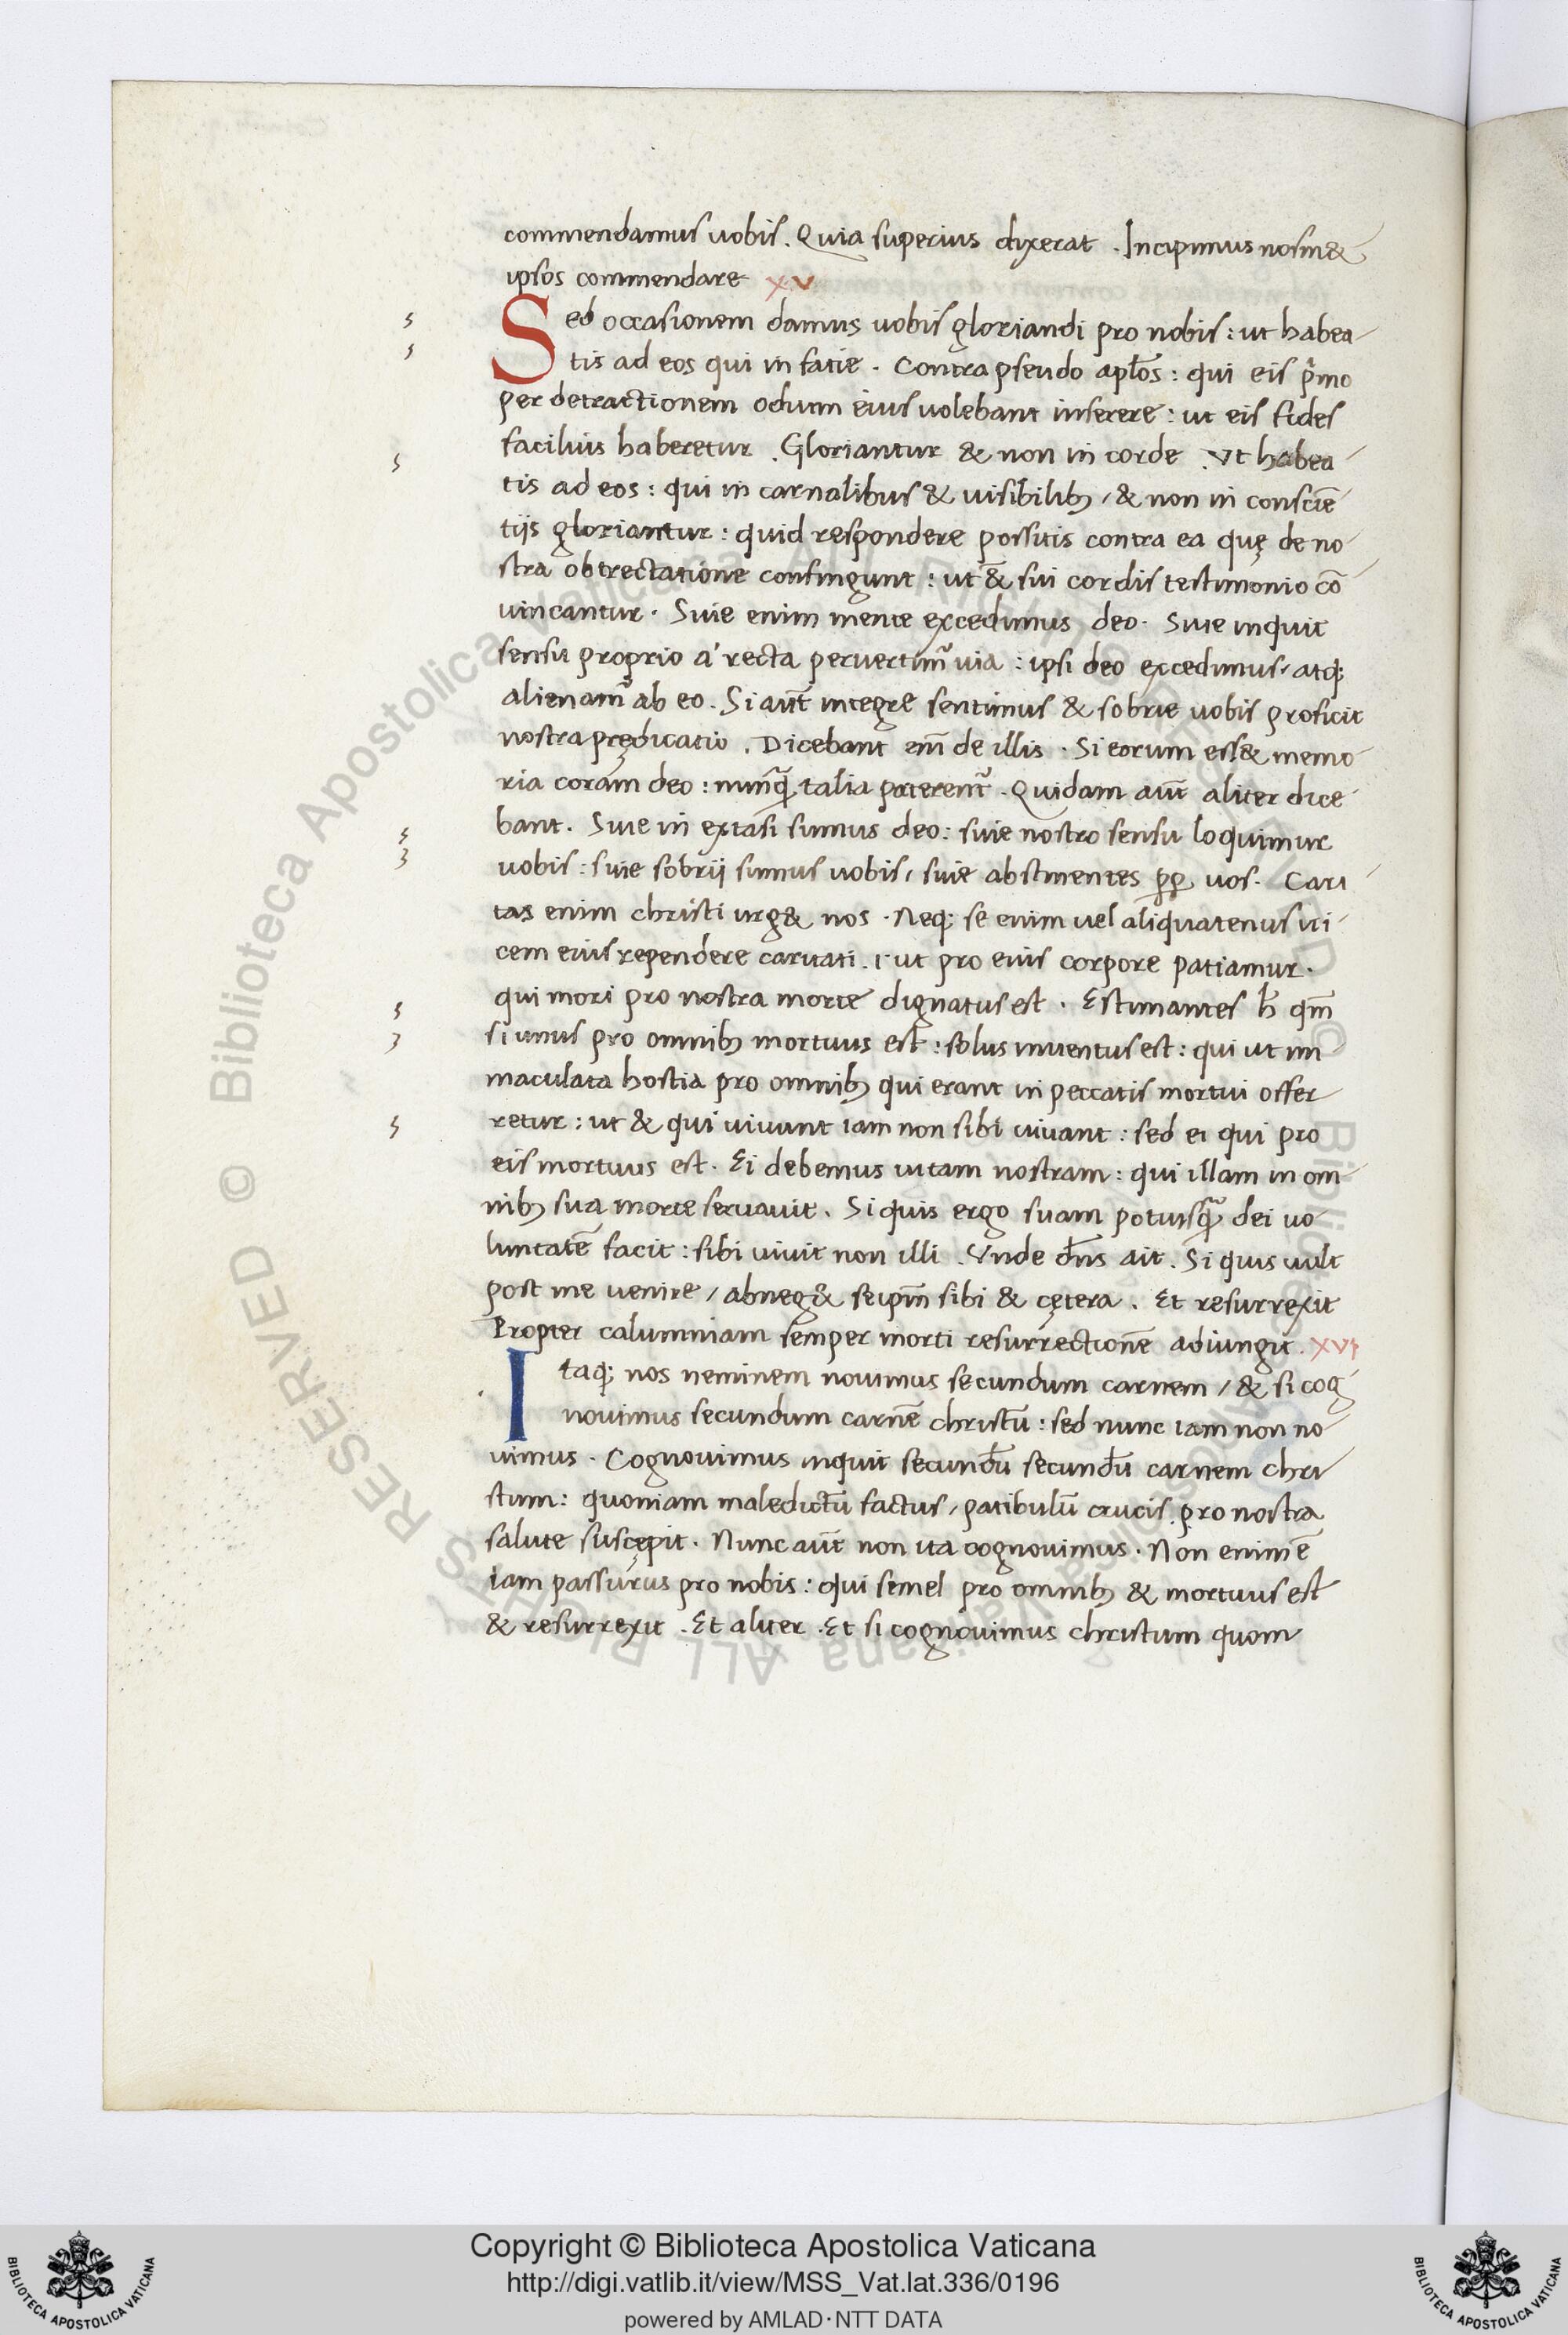 commendamus uobis. Quia superius dixerat. Incipimus nosm&
ipsos commendare XV
Sed occasionem damus uobis gloriandi pro nobis: ut habea
tis ad eos qui in facie. Contra pseudo apl̄os: qui eis p̄mo
per detractionem odium eius uolebant inserere: ut eis fides
facilius haberetur. Gloriantur & non in corde. Vt habea
tis ad eos: qui in carnalibus & uisibilibꝫ, & non in consciē
tijs gloriantur: quid respondere possitis contra ea quę de no
stra obtrectatione confingunt: ut & sui cordis testimonio cō
uincantur. Siue enim mente excedimus deo. Siue inquit
sensu proprio a' recta peruertim᷑ uia: ipsi deo excedimus, atqꝫ
alienam᷑ ab eo. Si aūt integre sentimus & sobrie uobis proficit
nostra prędicatio. Dicebant em̄ de illis. Si eorum ess& memo
ria coram deo: nunq̄ talia paterent᷑. Quidam aūt aliter dice
bant. Siue in extasi sumus deo: siue nostro sensu loquimur
uobis: siue sobrii sumus uobis, siue abstinentes ꝓpꝑ uos. Cari
tas enim christi urg& nos. Neqꝫ se enim uel aliquatenus ui
cem eius rependere caritati. i. ut pro eius corpore patiamur.
qui mori pro nostra morte dignatus est. Estimantes h̄ qm̄
si unus pro omnibꝫ mortuus est: solus inuentus est: qui ut im
maculata hostia pro omnibꝫ qui erant in peccatis mortui offer
retur: ut & qui uiuunt iam non sibi uiuant: sed ei qui pro
eis mortuus est. Ei debemus uitam nostram: qui illam in om
nibꝫ sua morte seruauit. Si quis ergo suam potiusq̄ dei uo
luntatē facit: sibi uiuit non illi. Vnde dn̄s ait. Si quis uult
post me uenire, abneg& seipm̄ sibi & cętera. Et resurrexit
Propter calumniam semper morti resurrectionē adiungit. XVI
Itaqꝫ nos neminem nouimus secundum carnem, & si cog
nouimus secundum carnē christū: sed nunc iam non no
uimus. Cognouimus inquit secundū secundū carnem chri
stum: quoniam maledictū factus, patibulū crucis pro nostra
salute suscępit. Nunc aūt non ita cognouimus. Non enim ē
iam passurus pro nobis: qui semel pro omnibꝫ & mortuus est
& resurrexit. Et aliter. Et si cognouimus christum quoni
Copyright © Biblioteca Apostolica Vaticana
http://digi.vatlib.it/view/MSS_Vat.lat.336/0196
powered by AMLAD·NTT DATA
BIBLIOTECA APOSTOLICA VATICANA
BIBLIOTECA APOSTOLICA VATICANA